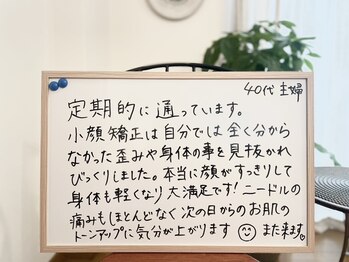 40代 主婦
定期的に通っています。
小顔矯正は自分では全く分から
なかった歪みや身体の事を見抜かれ
びっくりしました。本当に顔がすっきりして
身体も軽くなり大満足です！ニードルの
痛みもほとんどなく次の日からのお肌の
トーンアップに気分が上がります また来ます。